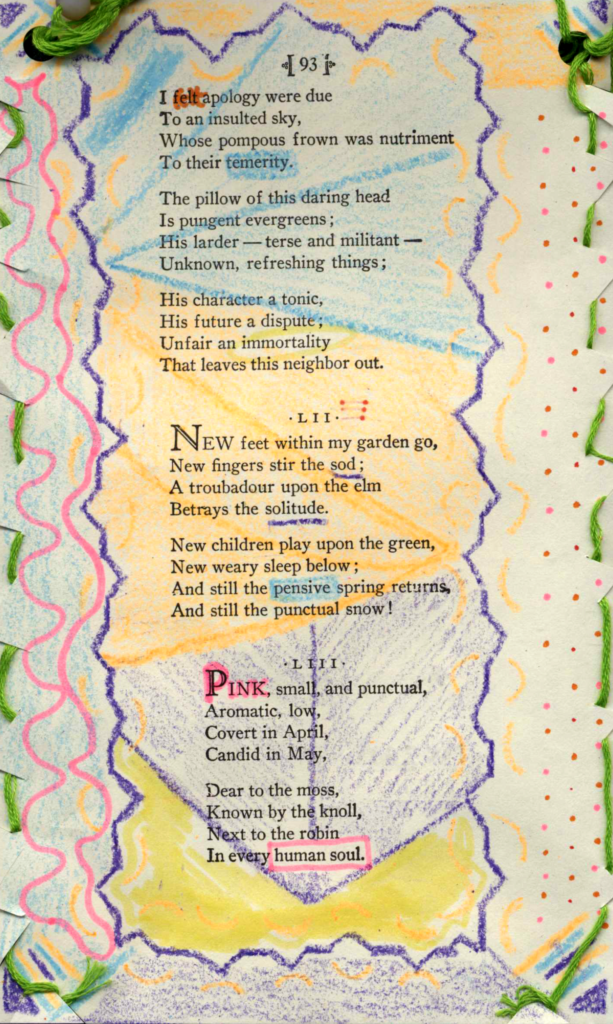 93
I felt apology were due
To an insulted sky,
Whose pompous frown was nutriment
To their temerity.
The pillow of this daring head
Is pungent evergreens;
His larder — terse and militant —
Unknown, refreshing things;
His character a tonic,
His future a dispute;
Unfair an immortality
That leaves this neighbor out.
· LII ·
NEW feet within my garden go,
New fingers stir the sod;
A troubadour upon the elm
Betrays the solitude.
New children play upon the green,
New weary sleep below;
And still the pensive spring returns,
And still the punctual snow!
· LIII ·
PINK, small, and punctual,
Aromatic, low,
Covert in April,
Candid in May,
Dear to the moss,
Known by the knoll,
Next to the robin
In every human soul.